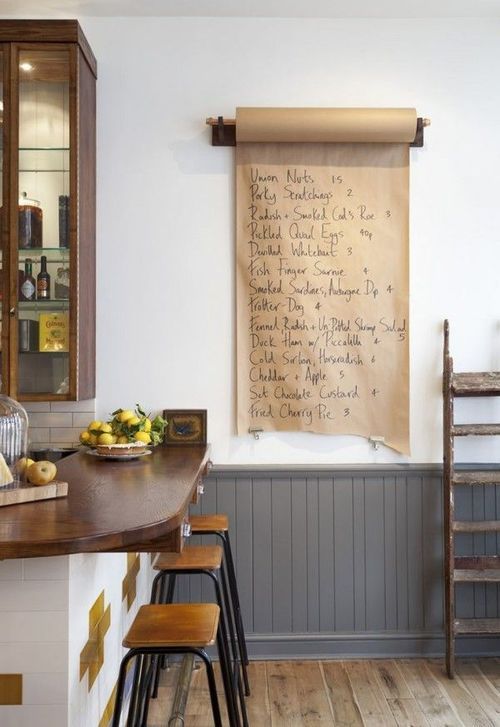 Union Nuts 1.5
Porky Scratchings 2
Radish + Smoked Cod's Roe 3
Pickled Quail Eggs 40p
Devilled Whitebait 3
Fish Finger Sarnie 4
Smoked Sardines, Aubergine Dip 4
Trotter Dog 4
Fennel Radish + Un-Potted Shrimp Salad
Duck Ham w/ Piccalilli 4 5
Cold Sirloin, Horseradish 6
Cheddar + Apple 5
Set Chocolate Custard 4
Fried Cherry Pie 3